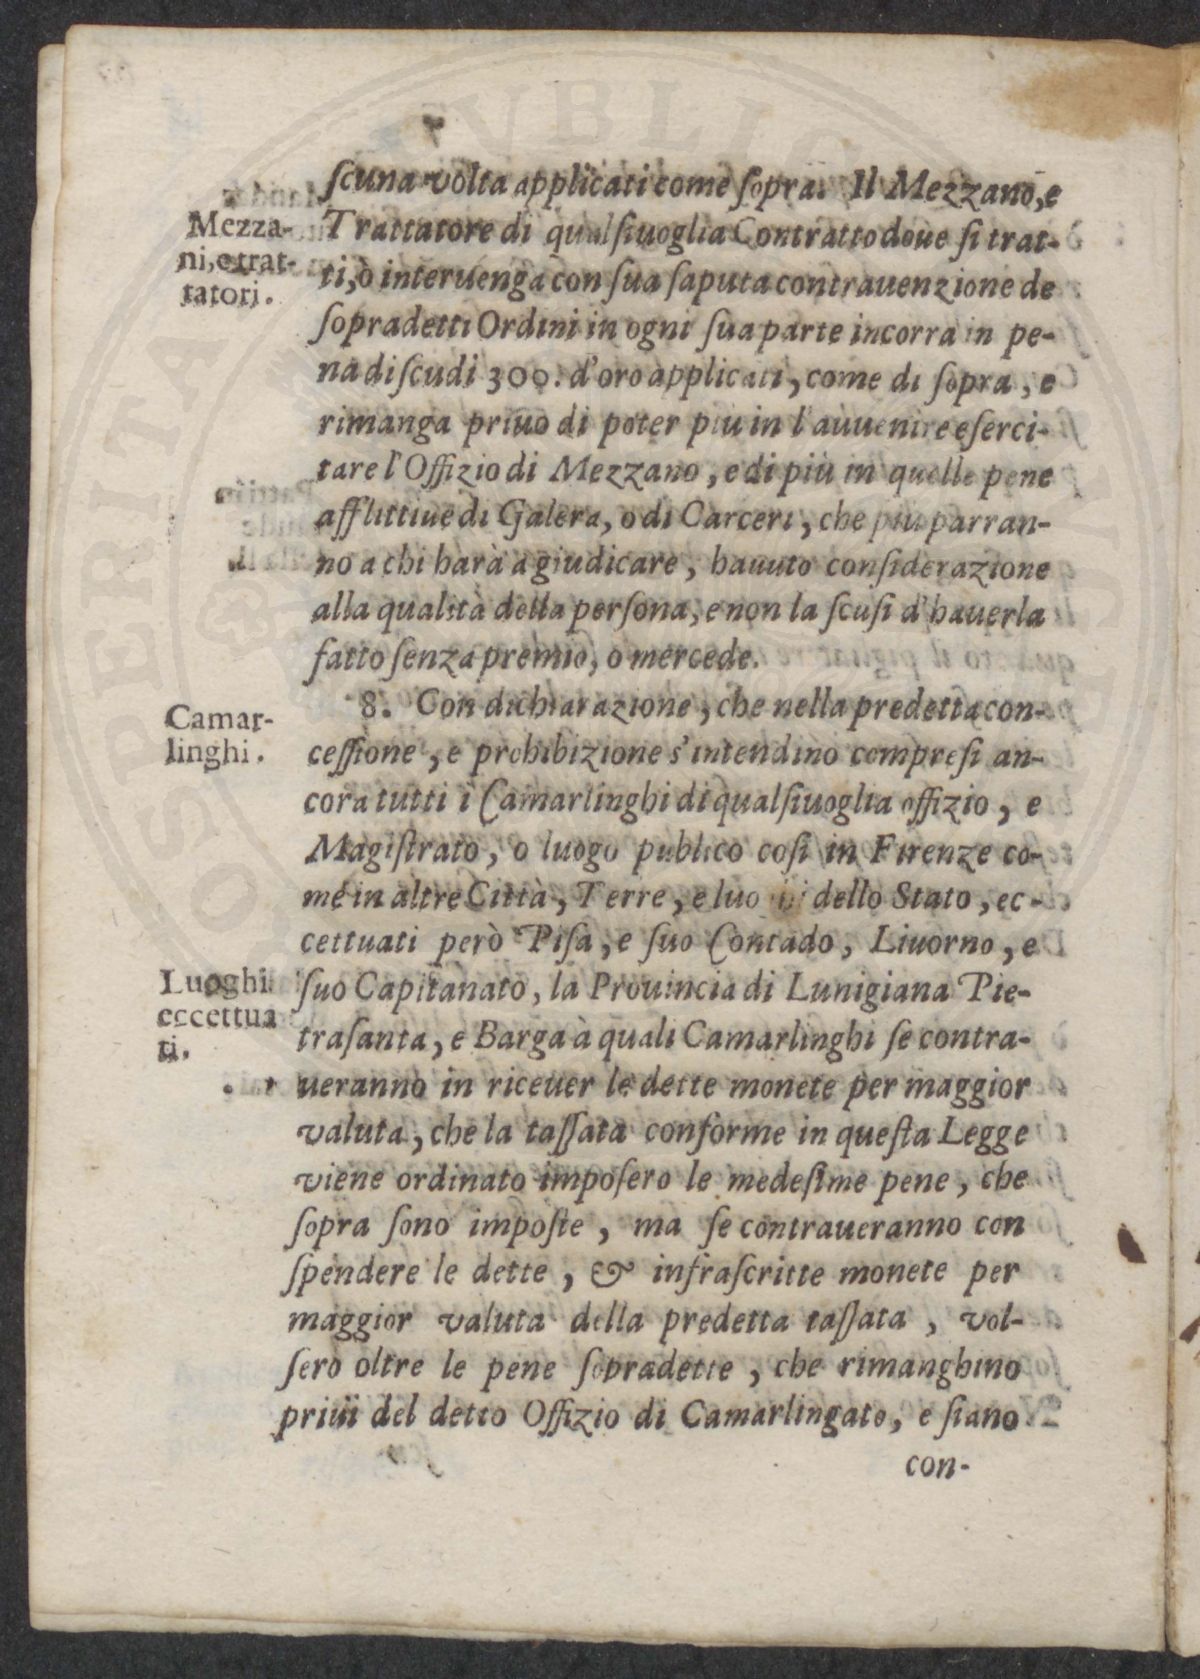 ſcuna volta applicati come ſopra. Il Mezzano, e
Mezza-
ni, e trat-
tatori.
Trattatore di qualſiuoglia Contratto doue ſi trat-
ti, ò interuenga con ſua ſaputa contrauenzione de
ſopradetti Ordini in ogni ſua parte incorra in pe-
na di ſcudi 300. d'oro applicati, come di ſopra, e
rimanga priuo di poter più in l'auuenire eſerci-
tare l'Offizio di Mezzano, e di più in quelle pene
afflittiue di Galera, o di Carceri, che più parran-
no a chi harà a giudicare, hauuto conſiderazione
alla qualità della perſona, e non la ſcuſi d'hauerla
fatto ſenza premio, o mercede.
Camar-
linghi.
8. Con dichiarazione, che nella predetta con-
ceſſione, e prohibizione s'intendino compreſi an-
cora tutti i Camarlinghi di qualſiuoglia offizio, e
Magiſtrato, o luogo publico coſi in Firenze co-
me in altre Città, Terre, e dello Stato, ec-
cettuati però Piſa, e ſuo Contado, Liuorno, e
Luoghi
eccettua
ti.
ſuo Capitanato, la Prouincia di Lunigiana Pie-
traſanta, e Barga à quali Camarlinghi ſe contra-
ueranno in riceuer le dette monete per maggior
valuta, che la taſſata conforme in queſta Legge
viene ordinato impoſero le medeſime pene, che
ſopra ſono impoſte, ma ſe contraueranno con
ſpendere le dette, & infraſcritte monete per
maggior valuta della predetta taſſata, vol-
ſero oltre le pene ſopradette, che rimanghino
priui del detto Offizio di Camarlingato, e ſiano
con-